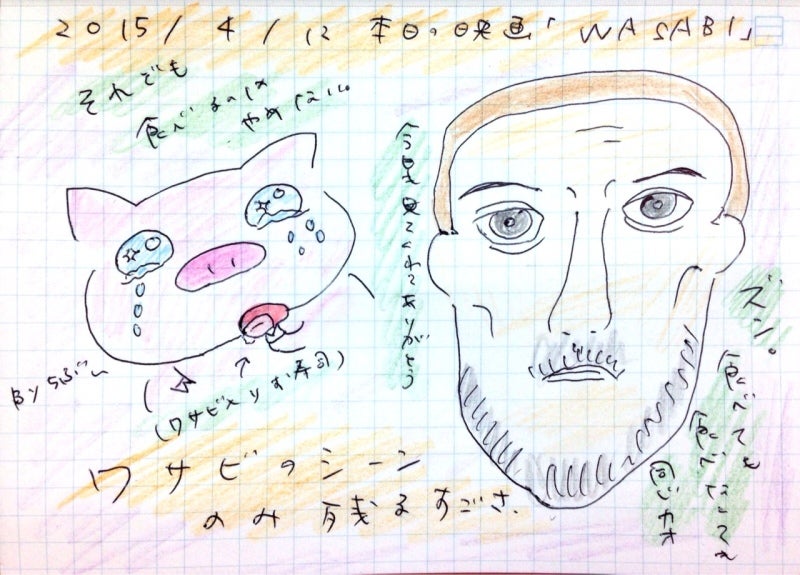 2015/4/12 本日の映画「WASABI」
それでも
食べるのは
やめない。
今日も見てくれてありがとう
ズン。
食べても
食べなくても
同じカオ
By らぶぅ
(ワサビメリお寿司)
ワサビのシーン
のみ残るすごさ.